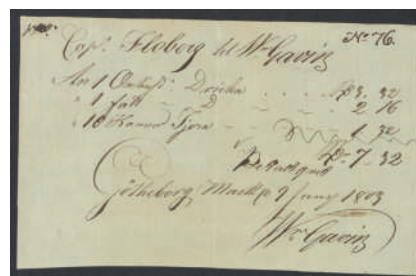 No 76.
Capt. Floberg till Wm Gavin
An 1 Oxhufd: Dricka . . . Rd 3. 32
" 1 fatt — D — — — 2 16
" 10 Kannor Tjera — — 1. 32
Rd 7. 32
Betalt
Götheborg 9 Juny 1803
Wm Gavin